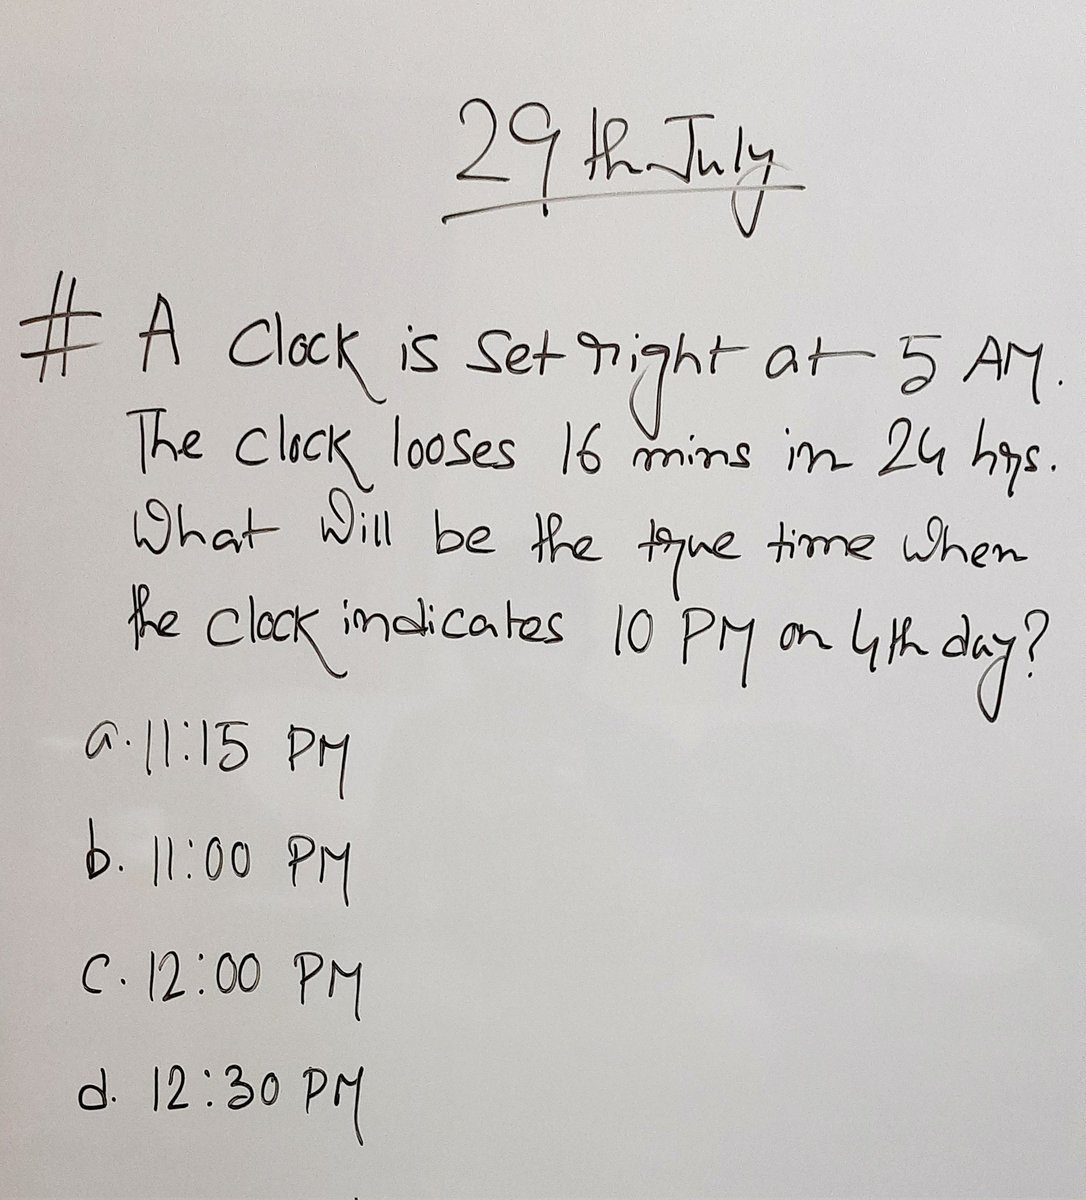 29th July
# A Clock is Set right at 5 AM.
The Clock looses 16 mins in 24 hrs.
What Will be the true time When
the Clock indicates 10 PM on 4th day?
a. 11:15 PM
b. 11:00 PM
C. 12:00 PM
d. 12:30 PM